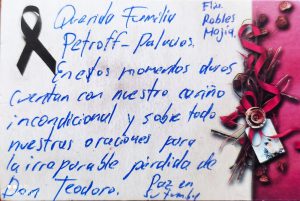 Querida Familia
Petroff-Palacios.
En estos momentos duros
cuentan con nuestro cariño
incondicional y sobre todo
nuestras oraciones para
la irreparable pérdida de
Don Teodoro. Paz en
su tumba
Flia.
Robles
Mojía.